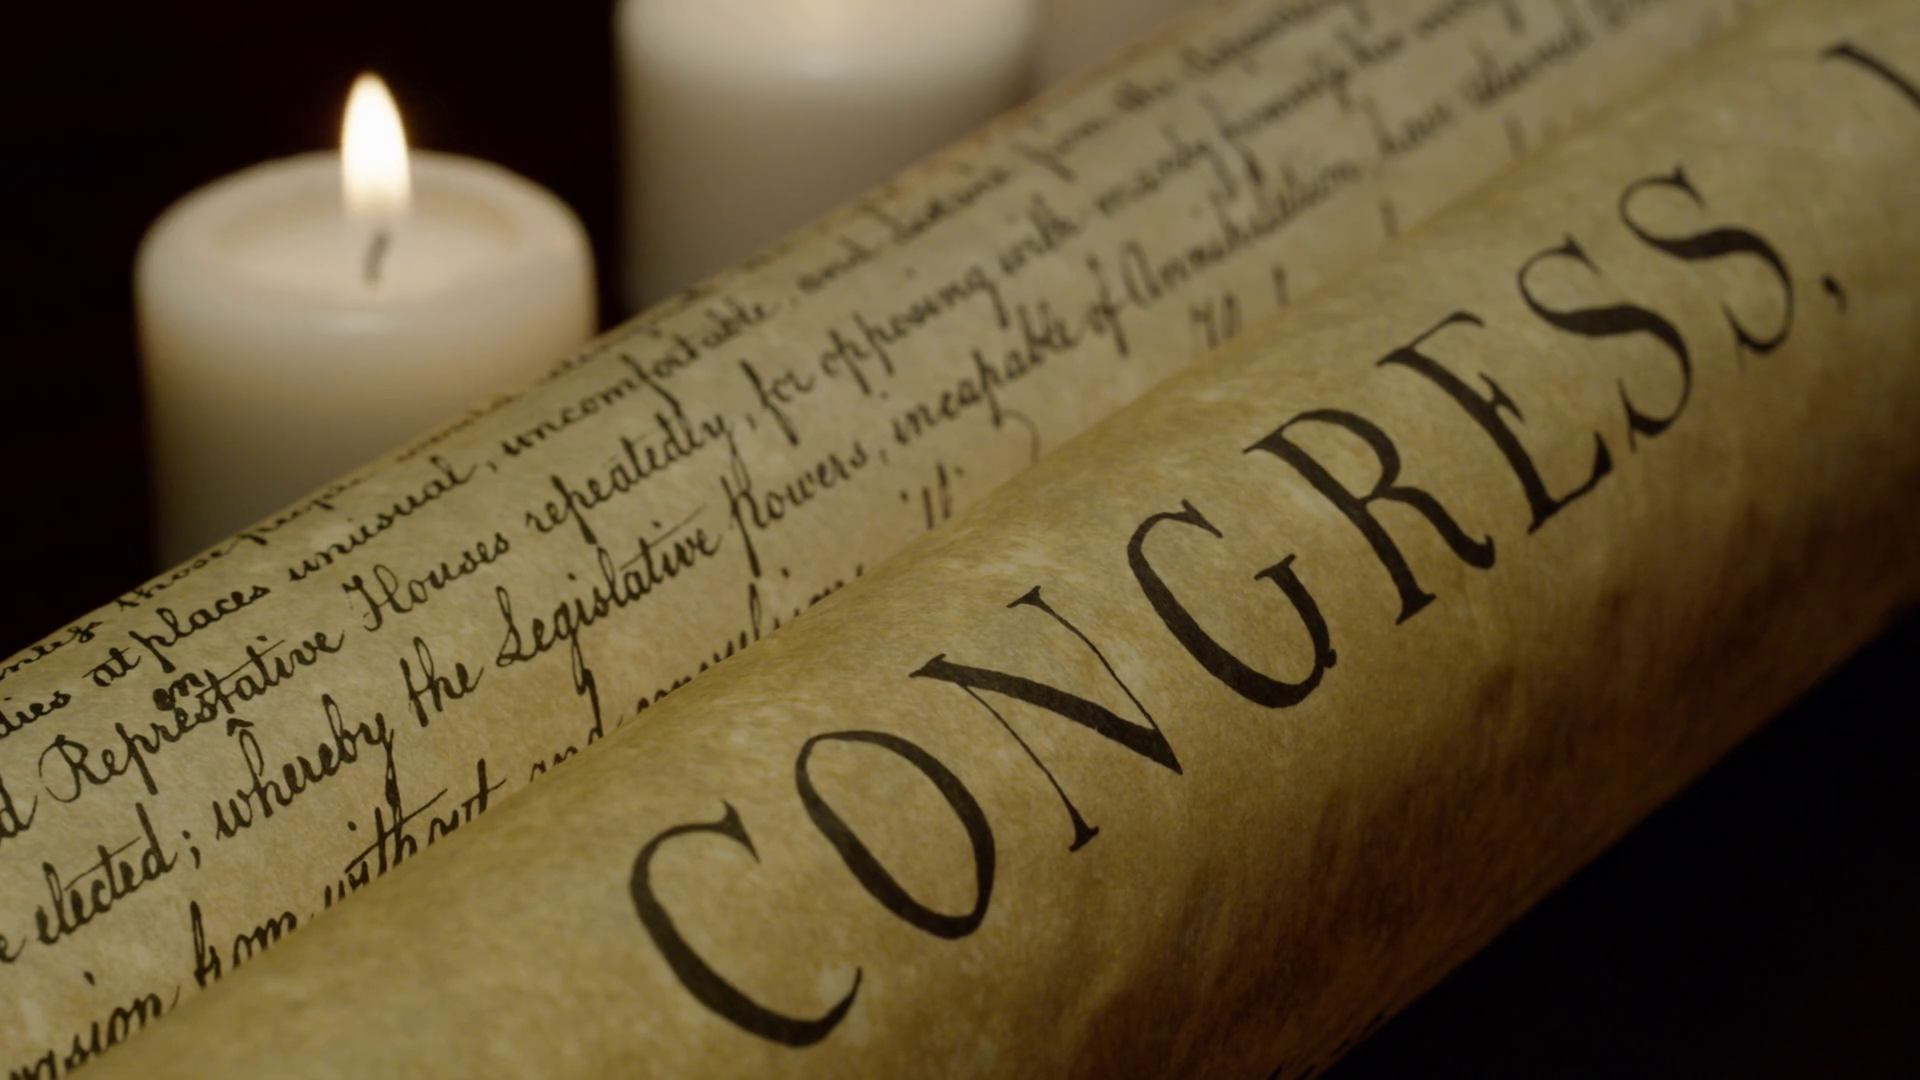 those people
at places unusual, uncomfortable, and distant from the
Representative Houses repeatedly, for opposing with manly firmness his
elected; whereby the Legislative Powers, incapable of Annihilation, have returned
from without and
CONGRESS,